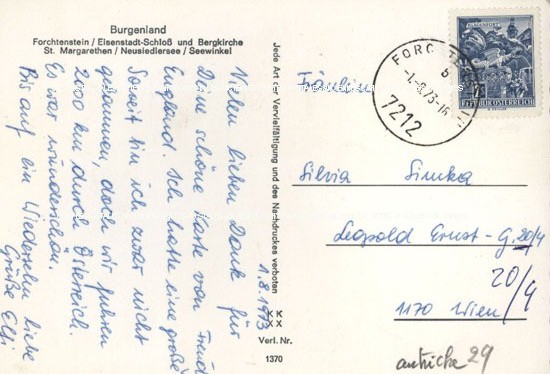 Burgenland
Forchtenstein / Eisenstadt-Schloß und Bergkirche
St. Margarethen / Neusiedlersee / Seewinkel
Vielen lieben Dank für
Deine schöne Karte von
England. Ich hatte eine große
Soweit bin ich zwar nicht
gekommen, doch wir fuhren
200 km durch Österreich.
Es war wunderschön.
Bis auf ein Wiedersehen liebe
Grüße Elli
1.8.1973
Jede Art der Vervielfältigung und des Nachdruckes verboten
KK
XX
Verl. Nr.
1370
FORCHTEN
b
-1.-8.73-16
7212
REPUBLIK ÖSTERREICH
Fräulein
Silvia Simka
Leopold Ernst-G. 20/4
20/4
1170 Wien
29